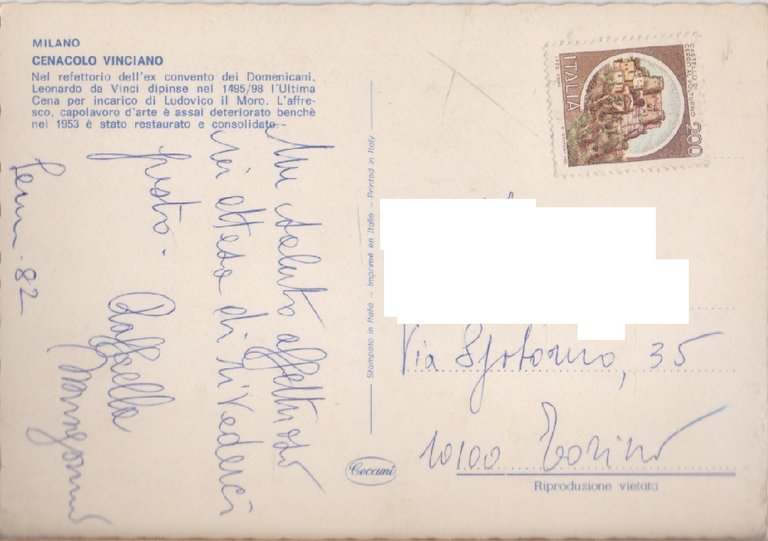 MILANO
CENACOLO VINCIANO
Nel refettorio dell'ex convento dei Domenicani,
Leonardo da Vinci dipinse nel 1495/98 l'Ultima
Cena per incarico di Ludovico il Moro. L'affre-
sco, capolavoro d'arte è assai deteriorato benchè
nel 1953 è stato restaurato e consolidato.
Un saluto affettuoso
in attesa di rivederci
presto.
Raffaella
82
Stampato in Italia — Imprimé en Italie — Printed in Italy
Ceccami
ITALIA
200
CASTELLO DI
CERRO AL VOLTURNO
Via Spotorno, 35
10100 Torino
Riproduzione vietata